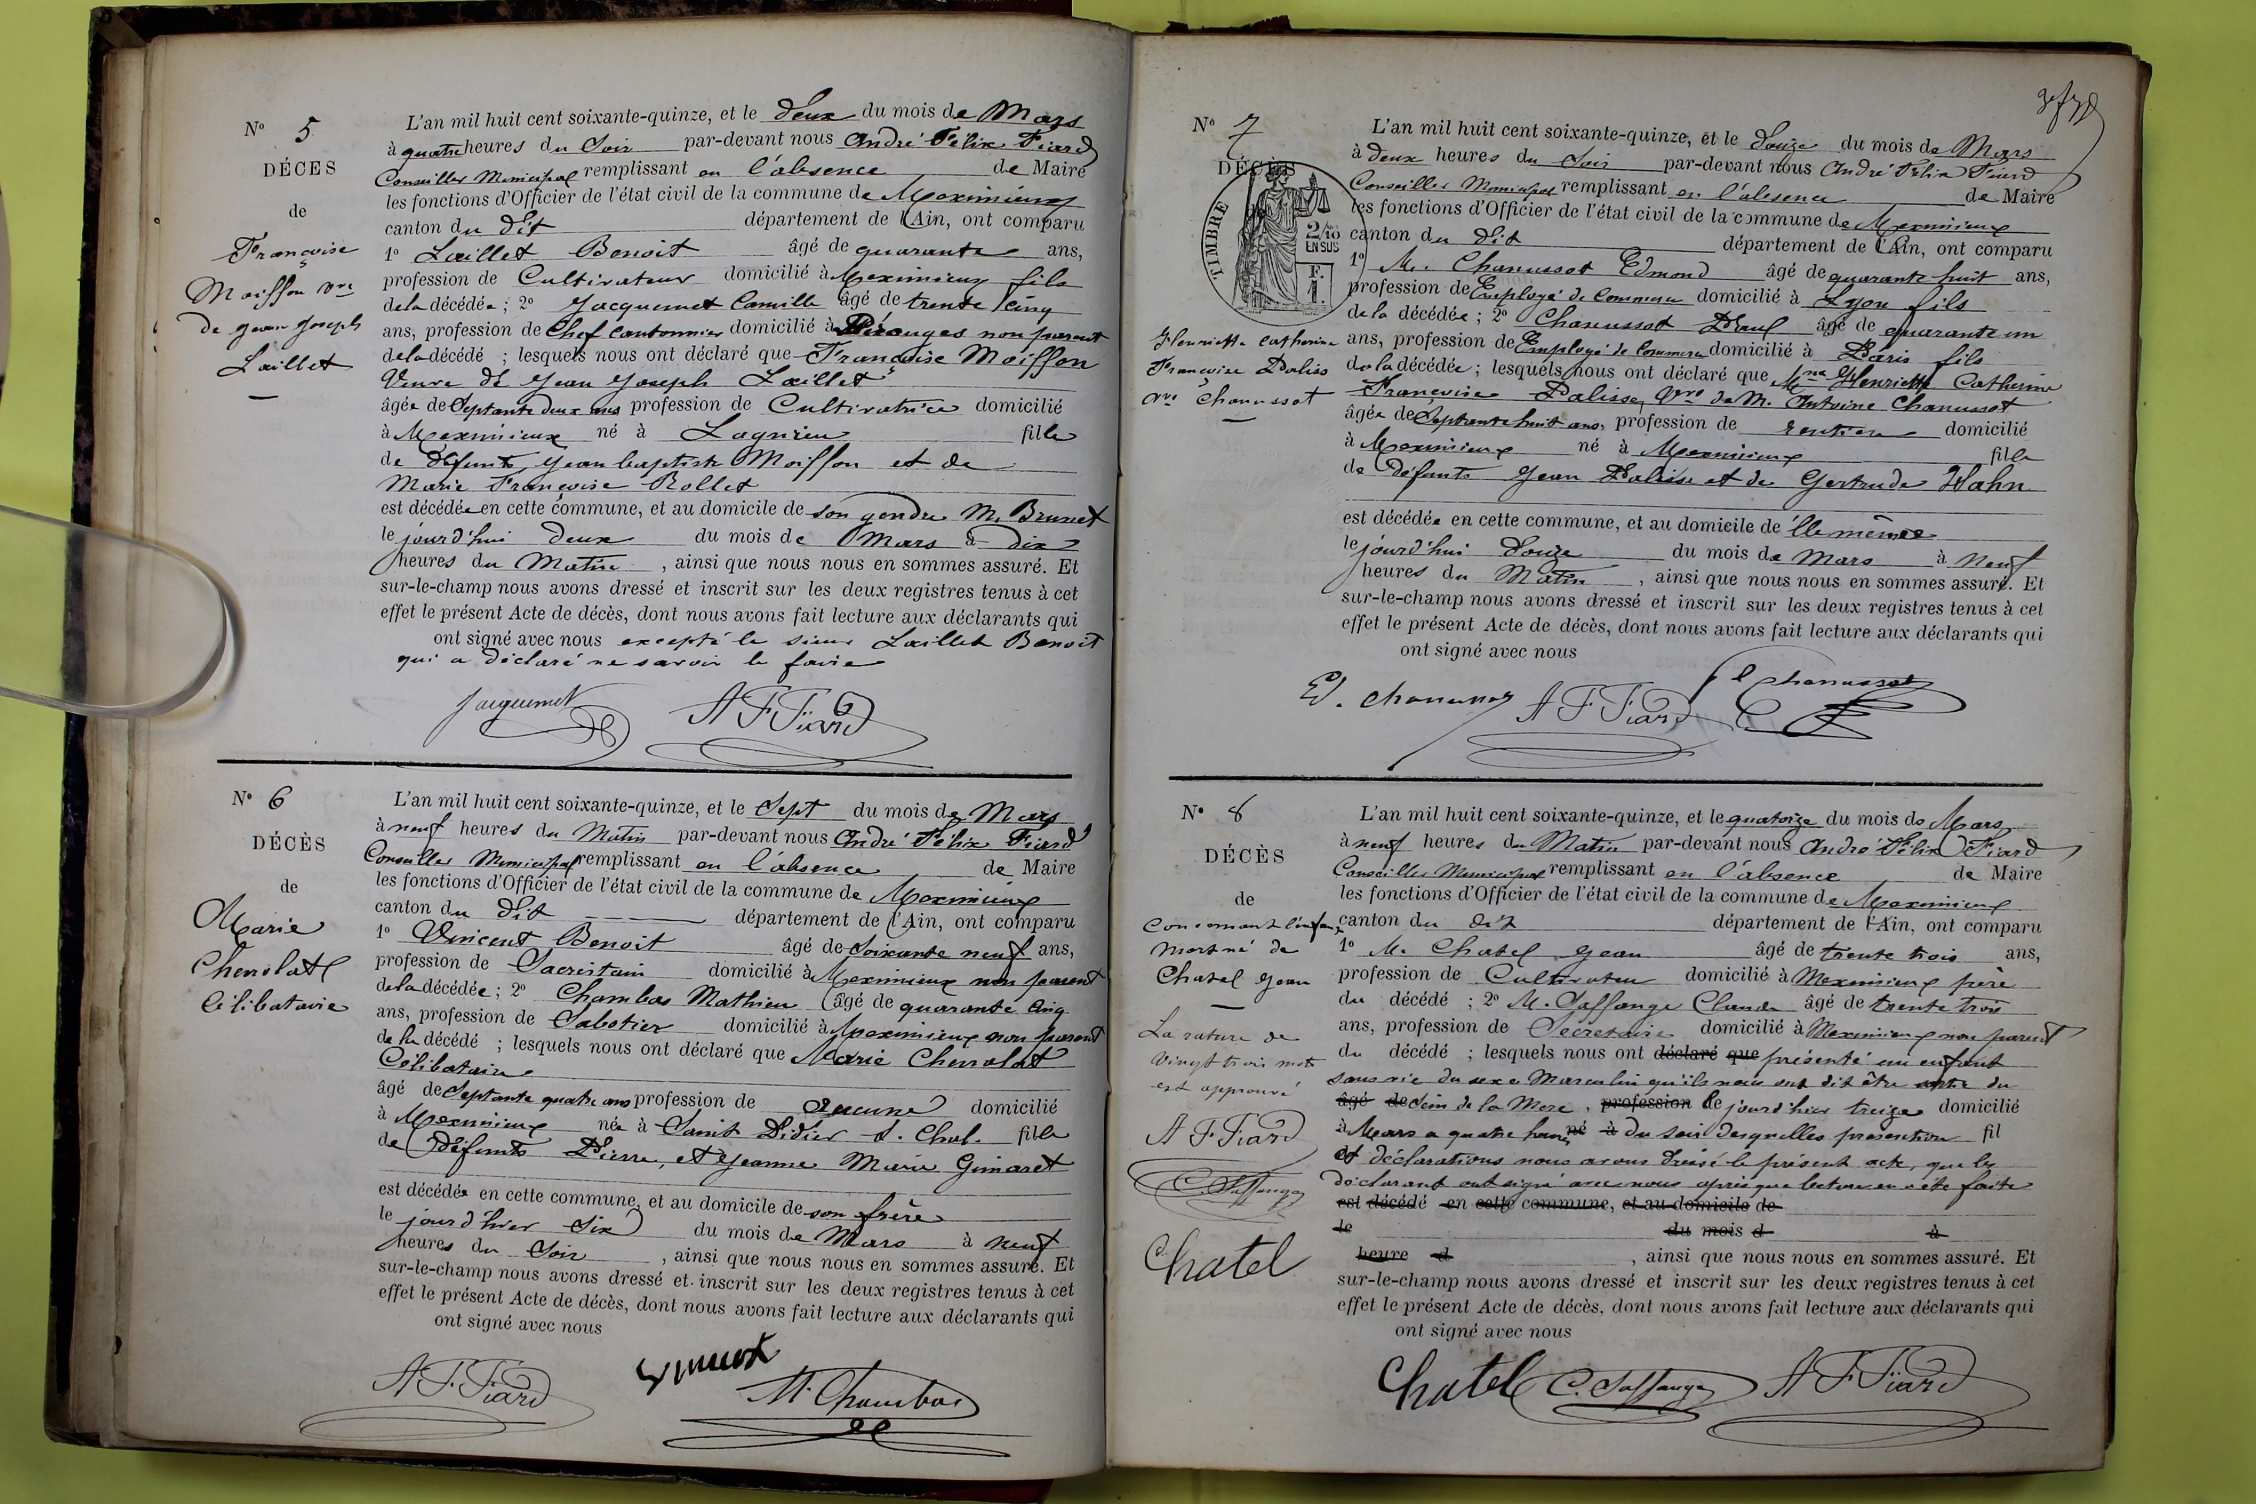 N° 5
DÉCES
de
Françoise
Moiffon vve
de Jean Joseph
Laillet
L'an mil huit cent soixante-quinze, et le deux du mois de Mars
à quatre heures du Soir par-devant nous André Félix Fiard
Conseiller Municipal remplissant en l'absence de Maire
les fonctions d'Officier de l'état civil de la commune de Meximieux
canton du dit département de l'Ain, ont comparu
1° Laillet Benoit âgé de quarante ans,
profession de Cultivateur domicilié à Meximieux fils
de la décédée ; 2° Jacquemet Camille âgé de trente cinq
ans, profession de Chef cantonnier domicilié à Pérouges non parent
de la décédé ; lesquels nous ont déclaré que Françoise Moiffon
Veuve de Jean Joseph Laillet
âgée de Septante deux ans profession de Cultivatrice domicilié
à Meximieux né à Lagnieu fille
de défunts Jean baptiste Moiffon et de
Marie Françoise Rollet
est décédée en cette commune, et au domicile de son gendre M. Brunet
le jourd'hui deux du mois de Mars à dix
heures du Matin , ainsi que nous nous en sommes assuré. Et
sur-le-champ nous avons dressé et inscrit sur les deux registres tenus à cet
effet le présent Acte de décès, dont nous avons fait lecture aux déclarants qui
ont signé avec nous excepté le sieur Laillet Benoit
qui a déclaré ne savoir le faire
Jacquemet A F Fiard
N° 6
DÉCÈS
de
Marie
Chevolat
Célibataire
L'an mil huit cent soixante-quinze, et le Sept du mois de Mars
à neuf heures du Matin par-devant nous André Félix Fiard
Conseiller Municipal remplissant en l'absence de Maire
les fonctions d'Officier de l'état civil de la commune de Meximieux
canton du dit département de l'Ain, ont comparu
1° Vincent Benoit âgé de Soixante neuf ans,
profession de Sacristain domicilié à Meximieux non parent
de la décédée ; 2° Chambas Mathieu âgé de quarante cinq
ans, profession de Sabotier domicilié à Meximieux non parent
de la décédé ; lesquels nous ont déclaré que Marie Chevolat
Célibataire
âgé de Septante quatre ans profession de aucune domicilié
à Meximieux née à Saint Didier s. Chal. fille
de défunts Pierre, et Jeanne Marie Gimaret
est décédée en cette commune, et au domicile de son frère
le jourd'hier Six du mois de Mars à neuf
heures du Soir , ainsi que nous nous en sommes assuré. Et
sur-le-champ nous avons dressé et inscrit sur les deux registres tenus à cet
effet le présent Acte de décès, dont nous avons fait lecture aux déclarants qui
ont signé avec nous
A. F. Fiard M. Chambas
N° 7
DÉCÈS
TIMBRE
2/10
EN SUS
F.
1.
Henriette Catherine
Françoise Palisse
vve Chanussot
L'an mil huit cent soixante-quinze, et le Douze du mois de Mars
à deux heures du Soir par-devant nous André Félix Fiard
Conseiller Municipal remplissant en l'absence de Maire
les fonctions d'Officier de l'état civil de la commune de Meximieux
canton du dit département de l'Ain, ont comparu
1° M. Chanussot Edmond âgé de quarante huit ans,
profession de Employé de Commerce domicilié à Lyon fils
de la décédée ; 2° Chanussot Paul âgé de quarante un
ans, profession de Employé de Commerce domicilié à Paris fils
de la décédée ; lesquels nous ont déclaré que Mme Henriette Catherine
Françoise Palisse, Vve de M. Antoine Chanussot
âgée de Septante huit ans, profession de rentière domicilié
à Meximieux né à Meximieux fille
de défunts Jean Palisse et de Gertrude Hahn
est décédée en cette commune, et au domicile de elle même
le jourd'hui Douze du mois de Mars à Neuf
heures du Matin , ainsi que nous nous en sommes assuré. Et
sur-le-champ nous avons dressé et inscrit sur les deux registres tenus à cet
effet le présent Acte de décès, dont nous avons fait lecture aux déclarants qui
ont signé avec nous
Ed. Chanussot A F Fiard P Chanussot
N° 8
DÉCÈS
de
Concernant l'enfant
mort né de
Chatel Jean
La rature de
vingt trois mots
est approuvé
A F Fiard
C. Saffange
Chatel
L'an mil huit cent soixante-quinze, et le quatorze du mois de Mars
à neuf heures du Matin par-devant nous André Félix Fiard
Conseiller Municipal remplissant en l'absence de Maire
les fonctions d'Officier de l'état civil de la commune de Meximieux
canton du dit département de l'Ain, ont comparu
1° M. Chatel Jean âgé de trente trois ans,
profession de Cultivateur domicilié à Meximieux père
du décédé ; 2° M. Saffange Claude âgé de trente trois
ans, profession de Secrétaire domicilié à Meximieux non parent
du décédé ; lesquels nous ont déclaré que présenté un enfant
sans vie du sexe Masculin qu'ils nous ont dit être du
âgé de Sein de la Mère, profession le jourd'hier treize domicilié
à Mars a quatre heures né à du soir desquelles présention fil
et déclarations nous avons dressé le présent acte, que les
déclarant ont signé avec nous après que lecture en a été faite
est décédé en cette commune, et au domicile de
le du mois d à
heure d , ainsi que nous nous en sommes assuré. Et
sur-le-champ nous avons dressé et inscrit sur les deux registres tenus à cet
effet le présent Acte de décès, dont nous avons fait lecture aux déclarants qui
ont signé avec nous
Chatel C. Saffange A F Fiard